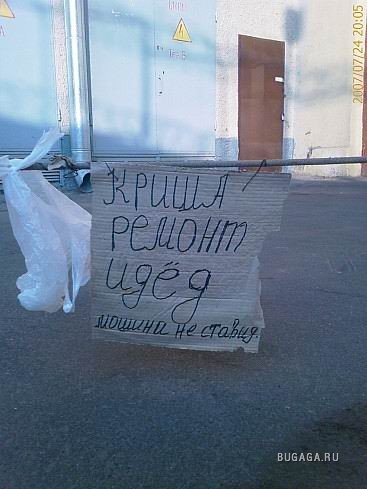 2007/07/24 20:05
КРИША
РЕМОНТ
идёд
мошина не ставид.
BUGAGA.RU